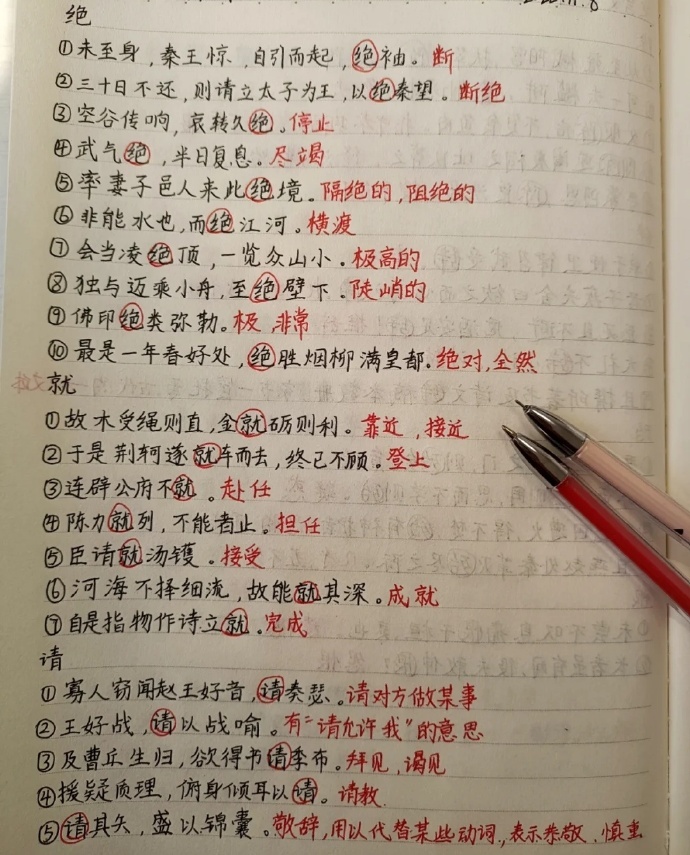 绝
①未至身,秦王惊,自引而起,绝袖。断
②三十日不还,则请立太子为王,以绝秦望。断绝
③空谷传响,哀转久绝。停止
④武气绝,半日复息。尽竭
⑤率妻子邑人来此绝境。隔绝的,阻绝的
⑥非能水也,而绝江河。横渡
⑦会当凌绝顶,一览众山小。极高的
⑧独与迈乘小舟,至绝壁下。陡峭的
⑨佛印绝类弥勒。极,非常
⑩最是一年春好处,绝胜烟柳满皇都。绝对,全然
就
①故木受绳则直,金就砺则利。靠近,接近
②于是荆轲遂就车而去,终已不顾。登上
③连辟公府不就。赴任
④陈力就列,不能者止。担任
⑤臣请就汤镬。接受
⑥河海不择细流,故能就其深。成就
⑦自是指物作诗立就。完成
请
①寡人窃闻赵王好音,请奏瑟。请对方做某事
②王好战,请以战喻。有“请允许我”的意思
③及曹丘生归,欲得书请季布。拜见,谒见
④援疑质理,俯身倾耳以请。请教
⑤请其矢,盛以锦囊。敬辞,用以代替某些动词,表示恭敬、慎重